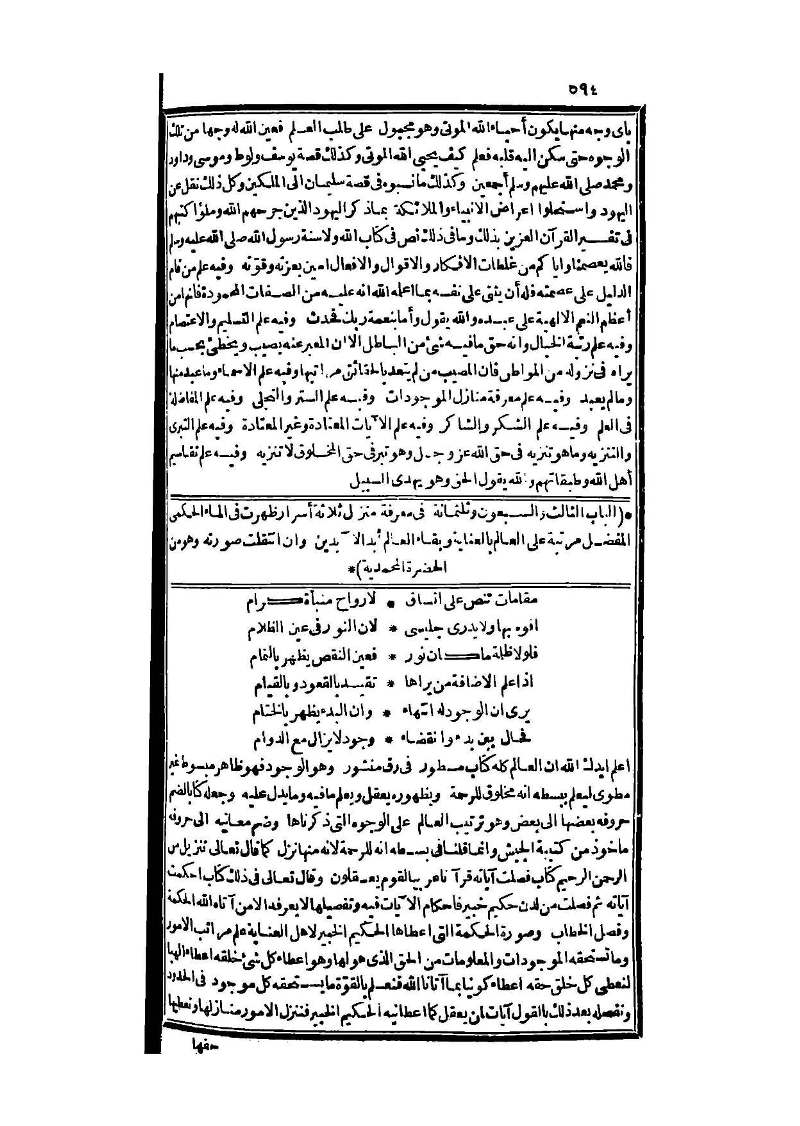 ٥٩٤
بأى وجه منها يكون أحياء الله الموتى وهو مجهول على طالب العلم فعين الله له وجها من تلك
الوجوه حتى سكن اليه قلبه فعلم كيف يحيى الله الموتى وكذلك قصة يوسف ولوط وموسى وداود
ومحمد صلى الله عليهم وسلم أجمعين وكذلك ما نسبوه فى قصة سليمان الى الملكين وكل ذلك نقل عن
اليهود واستحلوا اعراض الانبياء والملائكة بما ذكر اليهود الذين جرحهم الله وملؤا كتبهم
فى تفسير القرآن العزيز بذلك وما فى ذلك نص فى كتاب الله ولا سنة رسول الله صلى الله عليه وسلم
فالله يعصمنا واياكم من غلطات الافكار والاقوال والافعال امين بعزته وقوته وفيه علم من قام
الدليل على عصمته فله أن يثنى على نفسه بما اعلمه الله انه عليه من الصفات المحمودة فانها من
أعظم النعم الالهية على عبده والله يقول وأما بنعمة ربك فحدث وفيه علم التسليم والاعتصام
وفيه علم رتبة الخيال وانه حق ما فيه شئ من الباطل الا ان المعبر عنه يصيب ويخطئ بحسب ما
يراه فى نزوله من المواطن فان المصيب من لم يتعد بالحقائق مراتبها وفيه علم الاسماء وما عبد منها
وما لم يعبد وفيه علم معرفة منازل الموجودات وفيه علم الستر والتجلى وفيه علم المفاضلة
فى العلم وفيه علم الشكر والشاكر وفيه علم الآيات المعتادة وغير المعتادة وفيه علم التبرى
والتنزيه وما هو تنزيه فى حق الله عز وجل وهو تبر فى حق المخلوق لا تنزيه وفيه علم تقاسيم
أهل الله وطبقاتهم والله يقول الحق وهو يهدى السبيل
*(الباب الثالث والسبعون وثلثمائة فى معرفة منزل ثلاثة أسرار ظهرت فى الماء الحكمى
المفضل مرتبة على العالم بالعناية وبقاء العالم أبد الآبدين وان انتقلت صورته وهو من
الحضرة المحمدية)*
مقامات تنص على اتساق * لارواح منبأة كرام
افوه بها ولا يدرى جليسى * لان النور فى عين الظلام
فلولا ظلمة ما كان نور * فعين النقص يظهر بالتمام
اذا علم الاضافة من يراها * تقيد بالقعود وبالقيام
يرى ان الوجود له انتهاء * وان البدء يظهر بالختام
فحال بين بدء وانقضاء * وجود لا يزال مع الدوام
اعلم ايدك الله ان العالم كله كتاب مسطور فى رق منشور وهو الوجود فهو ظاهر مبسوط غير
مطوى ليعلم ببسطه انه مخلوق للرحمة وبظهوره يعقل ويعلم ما فيه وما يدل عليه وجعله كتابا لضم
حروفه بعضها الى بعض وهو ترتيب العالم على الوجوه التى ذكرناها وضم معانيه الى حروفه
ماخوذ من كتيبة الجيش وانما قلنا فى بسطه انه للرحمة لانه منها نزل كما قال تعالى تنزيل من
الرحمن الرحيم كتاب فصلت آياته قرآنا عربيا لقوم يعقلون وقال تعالى فى ذلك كتاب احكمت
آياته ثم فصلت من لدن حكيم خبير فاحكام الآيات فيه وتفصيلها لا يعرفه الا من آتاه الله الحكمة
وفصل الخطاب وصورة الحكمة التى اعطاها الحكيم الخبير لاهل العناية علم مراتب الامور
وما تستحقه الموجودات والمعلومات من الحق الذى هو لها وهو اعطاء كل شئ خلقه اعطاء الهيا
لنعطى كل خلق حقه اعطاء كونيا بما آتانا الله فنعلم بالقوة ما يستحقه كل موجود فى الحدود
ونفصله بعد ذلك بالقول آيات لمن يعقل كما اعطانيه الحكيم الخبير فننزل الامور منازلها ونعطيها
حقها